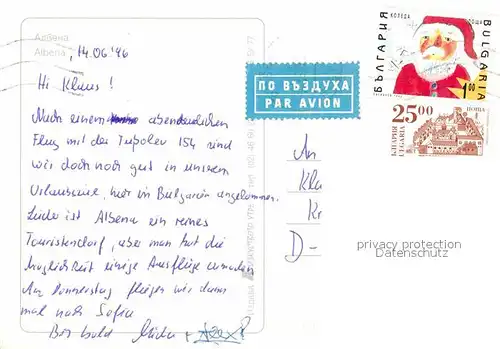 Албена
Albena
14.06.'96
Hi Klaus!
Nach einem abenteuerlichen
Flug mit der Tupolev 154 sind
wir doch noch gut in unserem
hier in Bulgarien angekommen.
Leider ist Albena ein reines
Touristendorf, aber man hat die
Möglichkeit einige Ausflüge
Am Donnerstag fliegen wir dann
mal nach Sofia
Bis bald
ПО ВЪЗДУХА
PAR AVION
БЪЛГАРИЯ
КОЛЕДА
ПОЩА
BULGARIA
1.00
25.00
ПОЩА
БЪЛГАРИЯ
BULGARIA
An
Kla
Kr
D-
privacy protection
Datenschutz